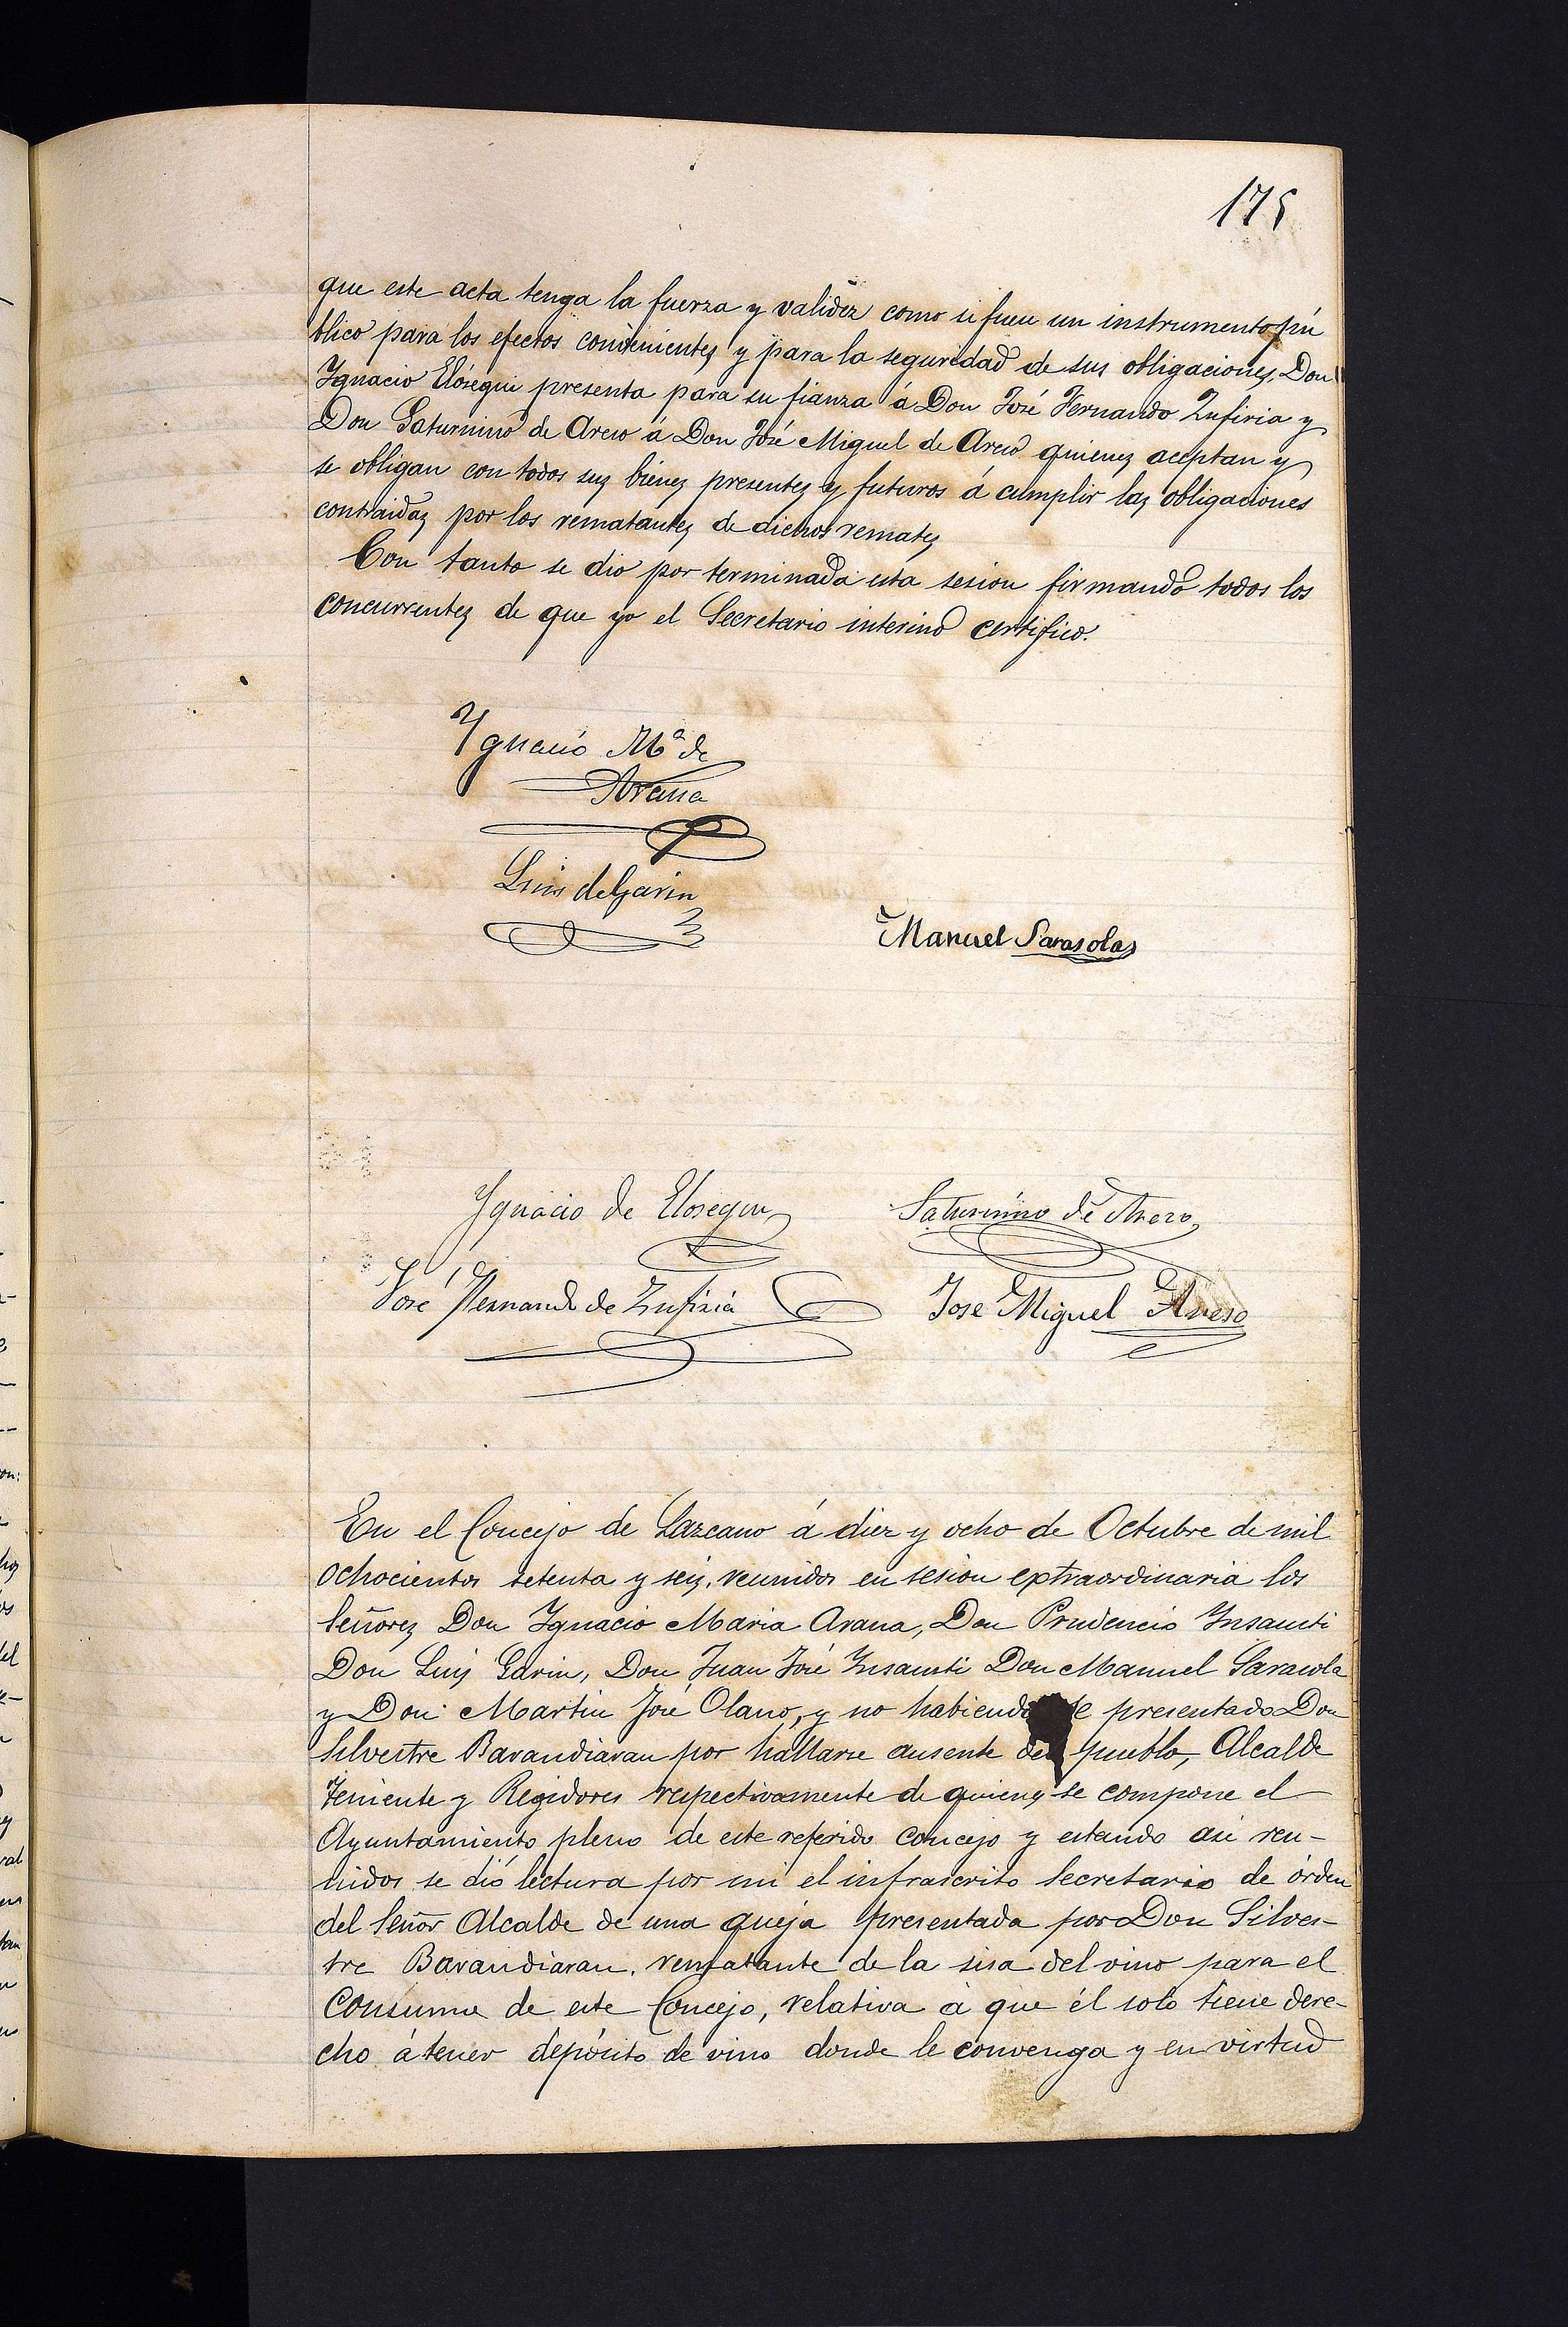 175
que este acta tenga la fuerza y validez como si fuere un instrumento pú
blico para los efectos convenientes y para la seguridad de sus obligaciones, Don
Ygnacio Elósegui presenta para su fianza á Don José Fernando Zufiria y
Don Saturnino de Areso á Don José Miguel de Areso quienes aceptan y
se obligan con todos sus bienes presentes y futuros á cumplir las obligaciones
contraidas por los rematantes de dichos remates
Con tanto se dio por terminada esta sesion firmando todos los
concurrentes de que yo el Secretario interino certifico.
Ygnacio Mª de
Arana
Luis de Garin
Manuel Sarasola
Ygnacio de Elosegui
Saturnino de Areso
José Fernando de Zufiria
Jose Miguel Areso
En el Concejo de Lazcano á diez y ocho de Octubre de mil
ochocientos setenta y seis, reunidos en sesion extraordinaria los
Señores Don Ygnacio Maria Arana, Don Prudencio Ynsausti
Don Luis Garin, Don Juan José Ynsausti Don Manuel Sarasola
y Don Martin José Olano, y no habiendo se presentado Don
Silvestre Barandiaran por hallarse ausente del pueblo, Alcalde
Teniente y Regidores respectivamente de quienes se compone el
Ayuntamiento pleno de este referido concejo y estando asi reu-
nidos se dió lectura por mi el infrascrito secretario de órden
del Señor Alcalde de una queja presentada por Don Silves-
tre Barandiaran, rematante de la sisa del vino para el
Consumo de este Concejo, relativa á que él solo tiene dere-
cho á tener depósito de vino donde le convenga y en virtud